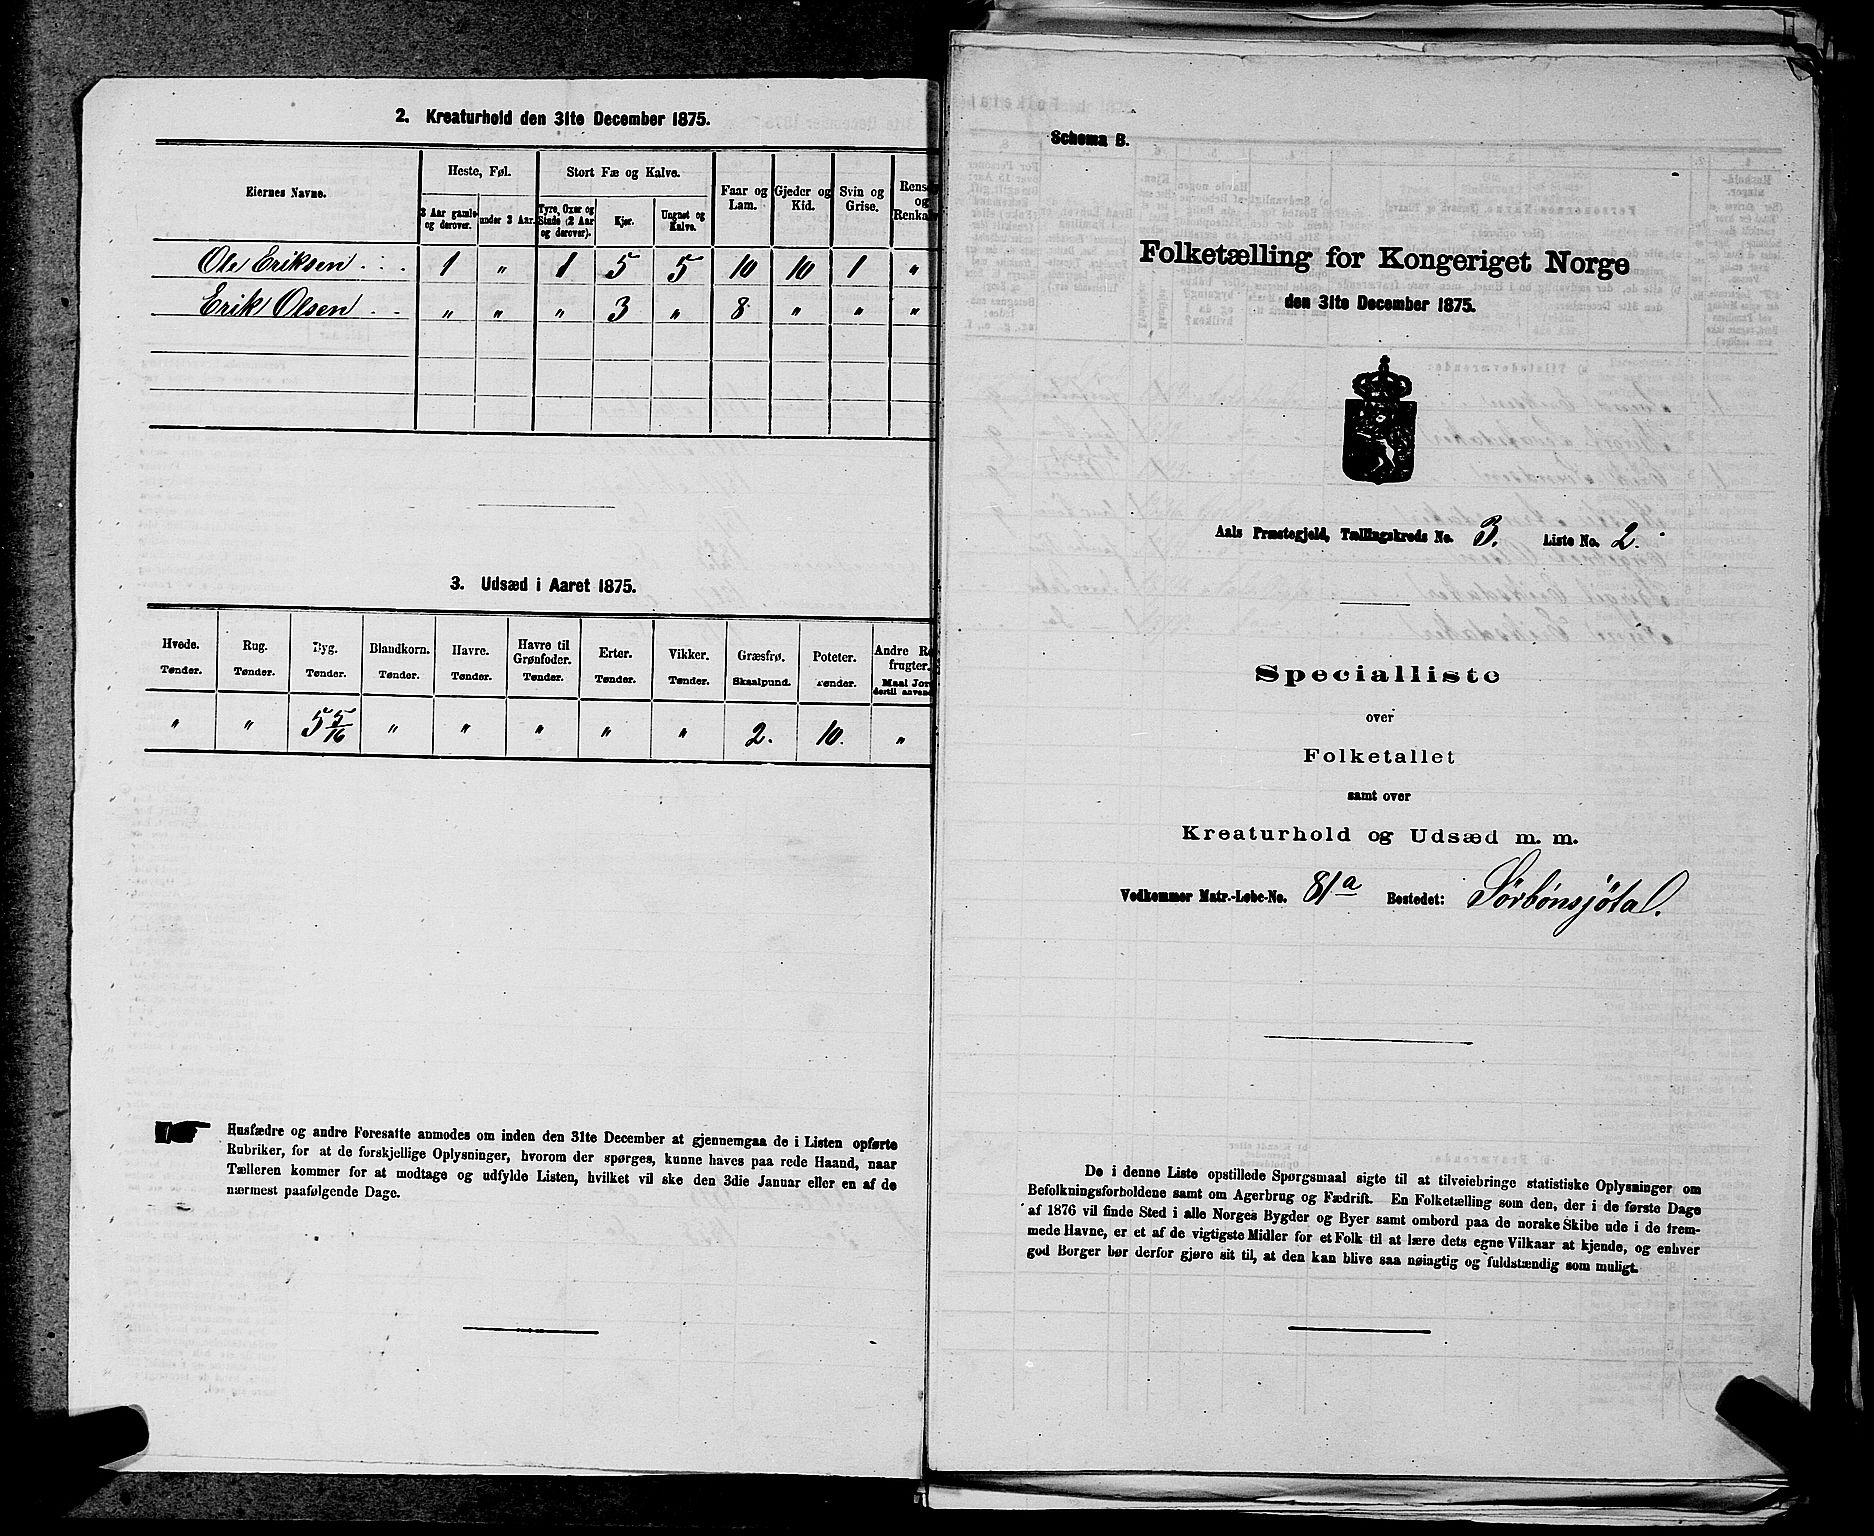 2. Kreaturhold den 31te December 1875.
Eiernes Navne.
Heste, Føl.
3 Aar gamle og derover.
under 3 Aar.
Stort Fæ og Kalve.
Tyre, Oxer og Stude (2 Aar og derover).
Kjør.
Ungnøt og Kalve.
Faar og Lam.
Gjeder og Kid.
Svin og Grise.
Rens
og
Renka
Ole Eriksen . . . 1 " 1 5 5 10 10 1 "
Erik Olsen . . " " " 3 " 8 " " "
3. Udsæd i Aaret 1875.
Hvede. Rug. Byg. Blandkorn. Havre. Havre til Grønfoder. Erter. Vikker. Græsfrø. Poteter. Andre R
frugter.
Tønder. Tønder. Tønder. Tønder. Tønder. Tønder. Tønder. Tønder. Skaalpund. Tønder. Maal Jor
dertil anven
" " 5 5/16 " " " " " 2. 10. "
Husfædre og andre Foresatte anmodes om inden den 31te December at gjennemgaa de i Listen opførte
Rubriker, for at de forskjellige Oplysninger, hvorom der spørges, kunne haves paa rede Haand, naar
Tælleren kommer for at modtage og udfylde Listen, hvilket vil ske den 3die Januar eller en af de
nærmest paafølgende Dage.
Schema B.
Folketælling for Kongeriget Norge
den 31te December 1875.
Aals Præstegjeld, Tællingskreds No. 3. Liste No. 2.
Specialliste
over
Folketallet
samt over
Kreaturhold og Udsæd m. m.
Vedkommer Matr.-Løbe-No. 81a Bostedet: Sørbönsjötal.
De i denne Liste opstillede Spørgsmaal sigte til at tilveiebringe statistiske Oplysninger om
Befolkningsforholdene samt om Agerbrug og Fædrift. En Folketælling som den, der i de første Dage
af 1876 vil finde Sted i alle Norges Bygder og Byer samt ombord paa de norske Skibe ude i de frem-
mede Havne, er et af de vigtigste Midler for et Folk til at lære dets egne Vilkaar at kjende, og enhver
god Borger bør derfor gjøre sit til, at den kan blive saa nøiagtig og fuldstændig som muligt.